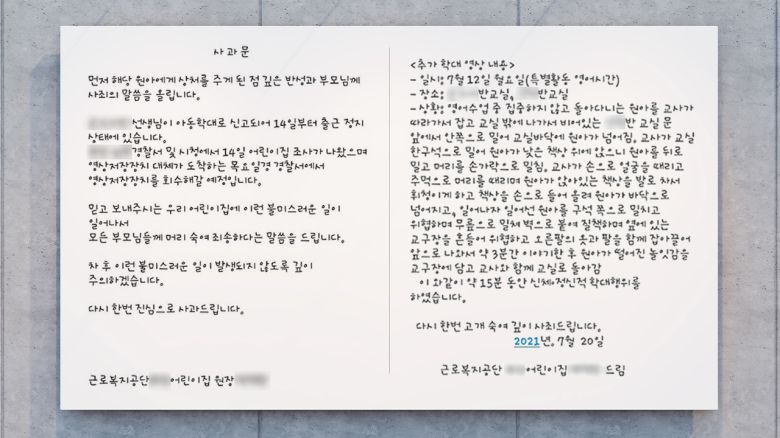 사 과 문
먼저 해당 원아에게 상처를 주게 된 점 깊은 반성과 부모님께
사죄의 말씀을 올립니다.
선생님이 아동학대로 신고되어 14일부터 출근 정지
상태에 있습니다.
경찰서 및 시청에서 14일 어린이집 조사가 나왔으며
영상저장장치 대체가 도착하는 목요일경 경찰서에서
영상저장장치를 회수해갈 예정입니다.
믿고 보내주시는 우리 어린이집에 이런 불미스러운 일이
일어나서
모든 부모님들께 머리 숙여 죄송하다는 말씀을 드립니다.
차 후 이런 불미스러운 일이 발생되지 않도록 깊이
주의하겠습니다.
다시 한번 진심으로 사과드립니다.
근로복지공단 어린이집 원장
<추가 학대 영상 내용>
- 일시: 7월 12일 월요일(특별활동 영어시간)
- 장소: 반교실, 반교실
- 상황: 영어수업 중 집중하지 않고 돌아다니는 원아를 교사가
따라가서 잡고 교실 밖에 나가서 비어있는 반 교실 문
앞에서 안쪽으로 밀어 교실바닥에 원아가 넘어짐. 교사가 교실
한구석으로 밀어 원아가 낮은 책상 위에 앉으니 원아를 뒤로
밀고 머리를 손가락으로 밀침. 교사가 손으로 얼굴을 때리고
주먹으로 머리를 때리며 원아가 앉아있는 책상을 발로 차서
휘청이게 하고 책상을 손으로 들어 올려 원아가 바닥으로
넘어지고, 일어나자 일어선 원아를 구석 쪽으로 밀치고
위협하며 무릎으로 밀쳐 벽으로 붙여 질책하며 옆에 있는
교구장을 흔들어 위협하고 오른팔의 옷과 팔을 함께 잡아끌어
앞으로 나와서 약 3분간 이야기한 후 원아가 떨어진 놀잇감을
교구장에 담고 교사와 함께 교실로 돌아감
이 와같이 약 15분 동안 신체·정신적 학대행위를
하였습니다.
다시 한번 고개 숙여 깊이 사죄드립니다.
2021년, 7월 20일
근로복지공단 어린이집 드림